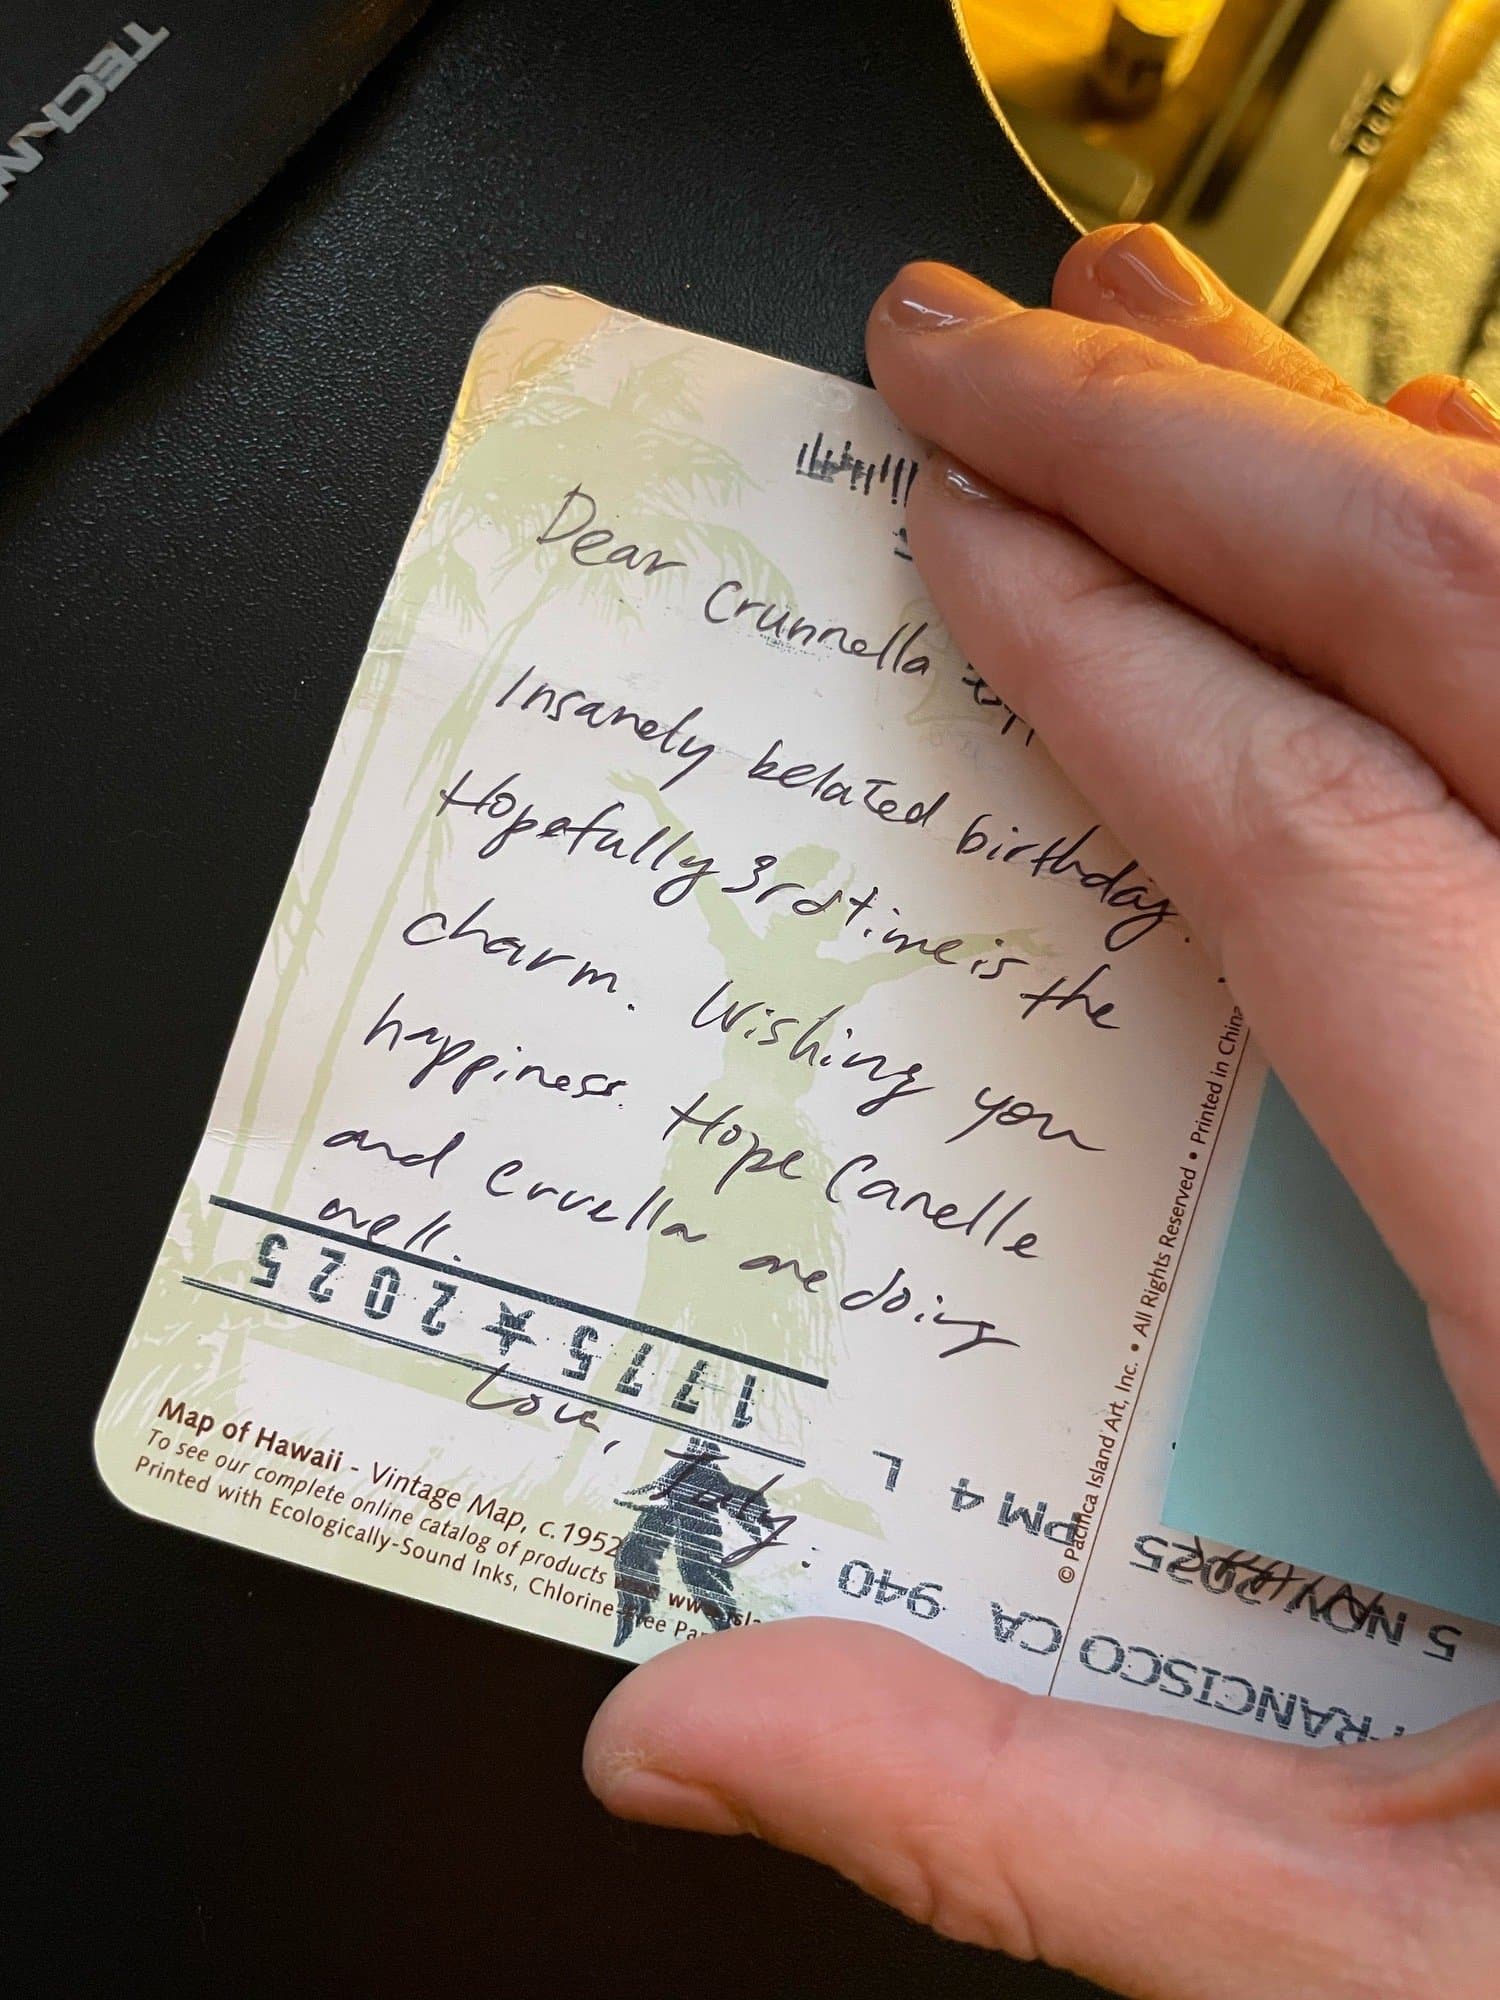 TECKN
Dear Crunnella
Insanely belated birthday.
Hopefully 3rd time is the
charm. Wishing you
happiness. Hope Canelle
and Cruella are doing
well.
Love,
1775★2025
Map of Hawaii - Vintage Map, c.1952
To see our complete online catalog of products
Printed with Ecologically-Sound Inks, Chlorine-Free
© Pacifica Island Art, Inc. • All Rights Reserved • Printed in China
FRANCISCO CA 940
5 NOV 2025 PM 4 L